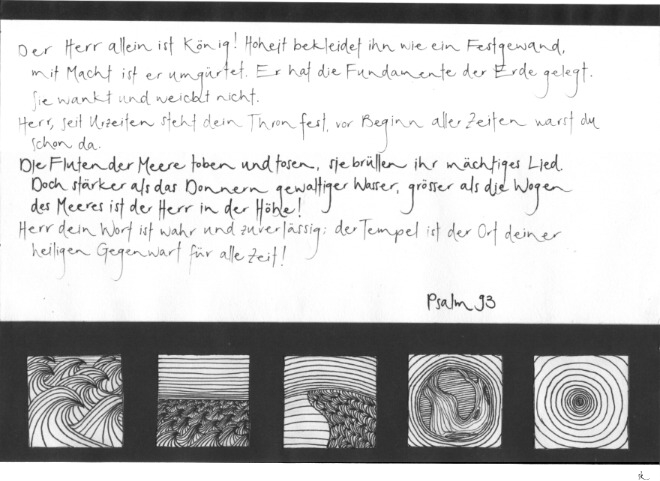 Der Herr allein ist König! Hoheit bekleidet ihn wie ein Festgewand,
mit Macht ist er umgürtet. Er hat die Fundamente der Erde gelegt.
Sie wankt und weicht nicht.
Herr, seit Urzeiten steht dein Thron fest, vor Beginn aller Zeiten warst du
schon da.
Die Fluten der Meere toben und tosen, sie brüllen ihr mächtiges Lied.
Doch stärker als das Donnern gewaltiger Wasser, grösser als die Wogen
des Meeres ist der Herr in der Höhe!
Herr dein Wort ist wahr und zuverlässig; der Tempel ist der Ort deiner
heiligen Gegenwart für alle Zeit!
Psalm 93